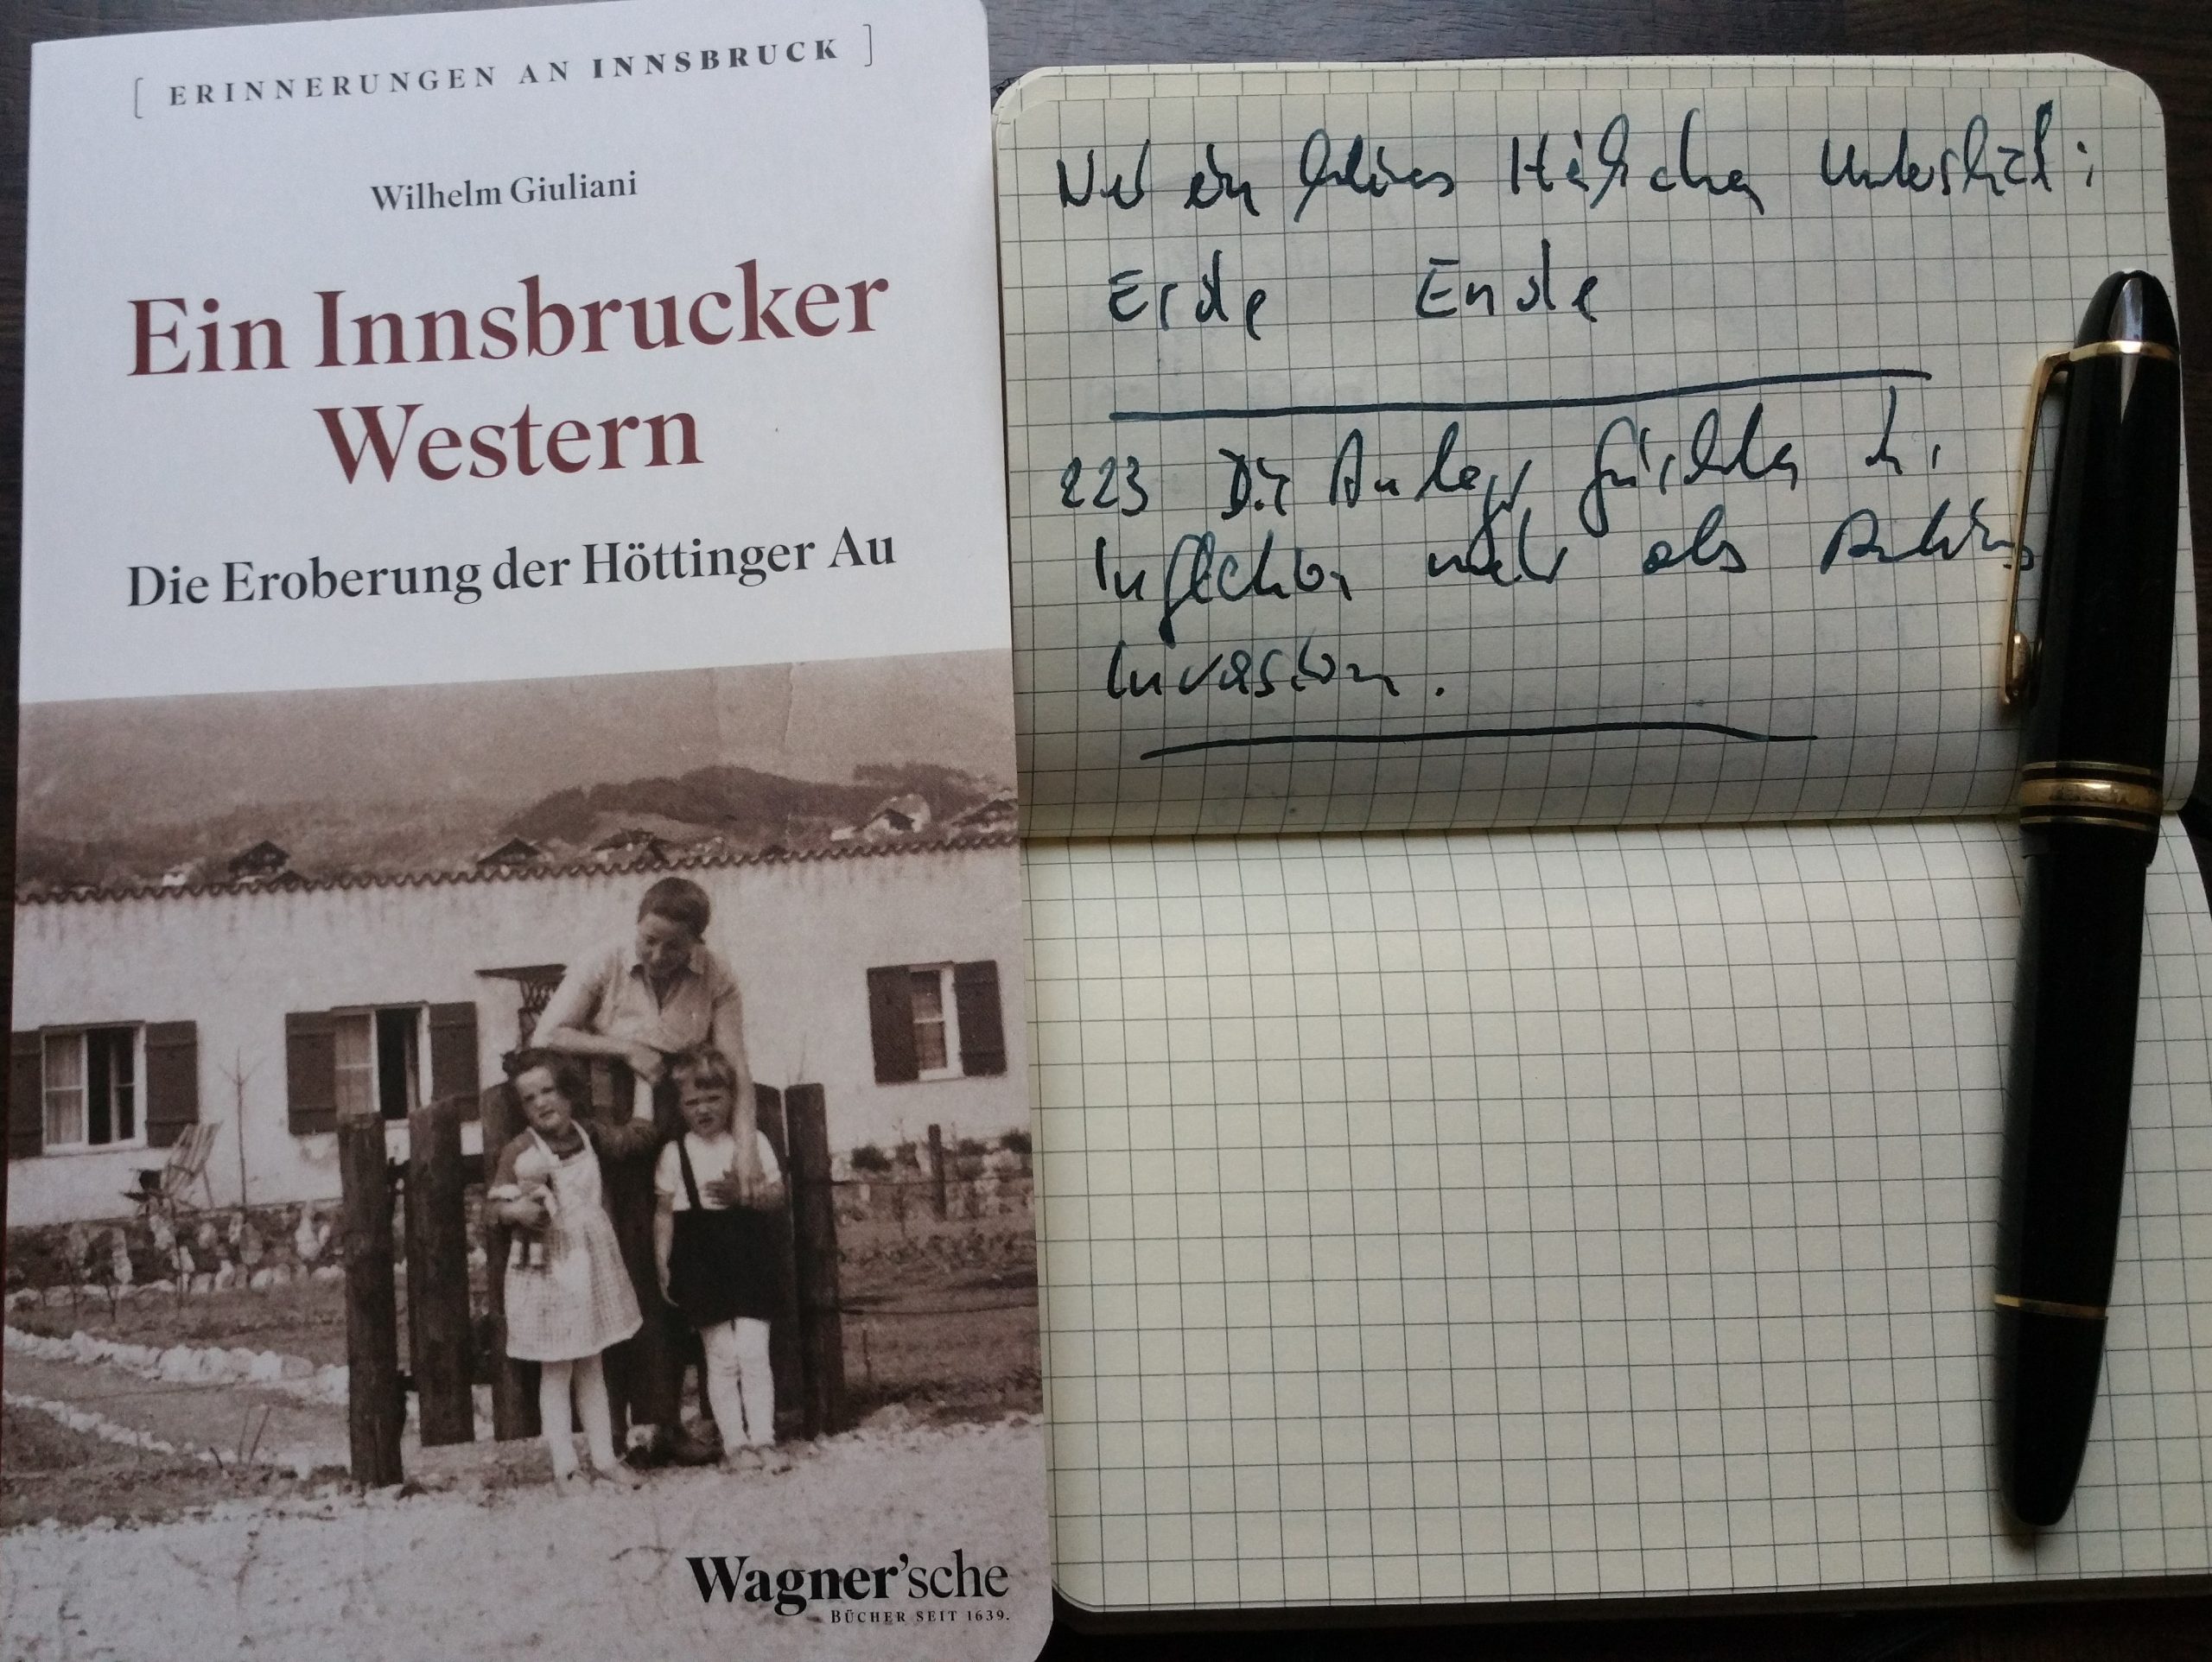 [ ERINNERUNGEN AN INNSBRUCK ]
Wilhelm Giuliani
Ein Innsbrucker
Western
Die Eroberung der Höttinger Au
Wagner'sche
BÜCHER SEIT 1639.
Nur ein kleines Häkchen Unterschied:
Erde Ende
223 Die Anleger fürchten
Inflection mehr als
Invasion.